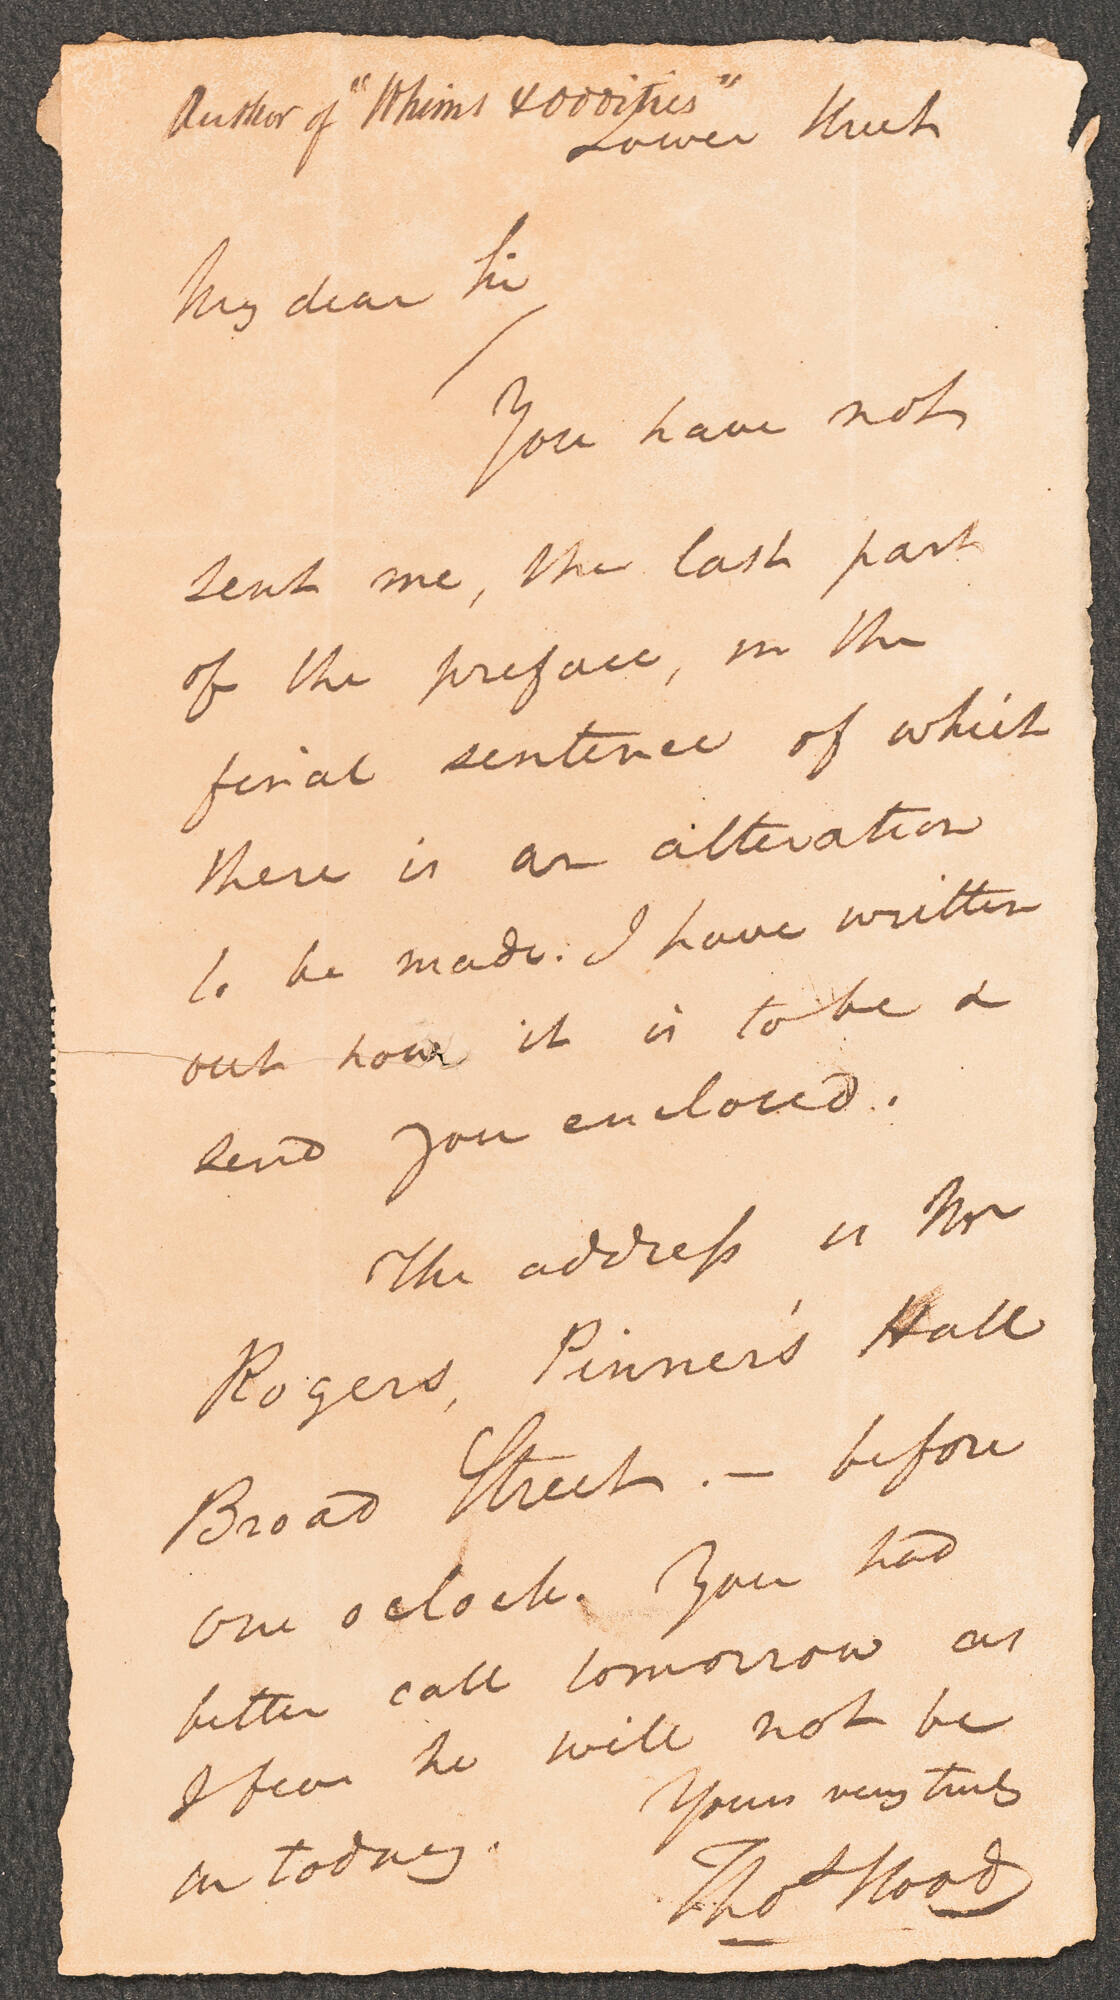 Author of "Whims & Oddities"
Lower Street
My dear Sir
You have not
sent me, the last part
of the preface, in the
final sentence of which
there is an alteration
to be made. I have written
out how it is to be &
send you enclosed.
The address is Mr
Rogers, Pinner's Hall
Broad Street. — before
one oclock. You had
better call tomorrow as
I fear he will not be
in today.
Yours very truly
Thos Hood